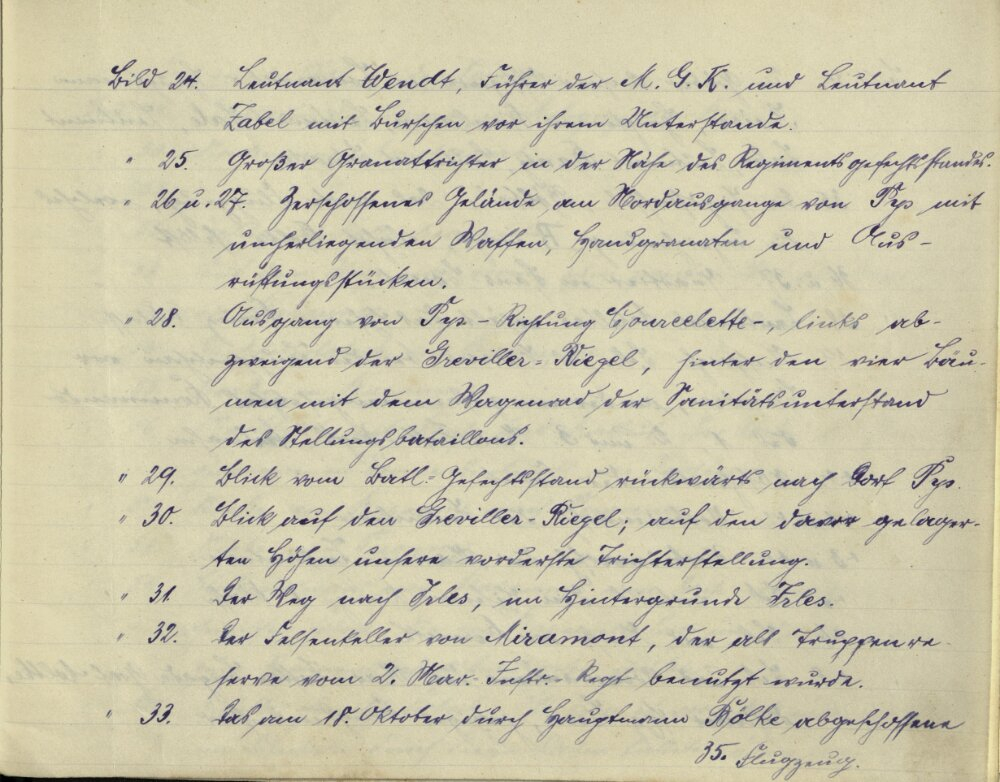 Bild 24. Leutnant Wendt, Führer der M. G. K. und Leutnant
Zabel mit Burschen vor ihrem Unterstande.
" 25. Großer Granattrichter in der Nähe des Regimentsgefechtsstandes.
" 26 u. 27. Zerschossenes Gelände am Nordausgange von Pys mit
umherliegenden Waffen, Handgranaten und Aus-
rüstungsstücken.
" 28. Ausgang von Pys - Richtung Courcelette - links ab-
zweigend der Greviller-Riegel, hinter den vier Bäu-
men mit dem Wagenrad der Sanitätsunterstand
des Stellungsbataillons.
" 29. Blick vom Batl-Gefechtsstand rückwärts nach Dorf Pys.
" 30. Blick auf den Greviller-Riegel; auf den davor gelager-
ten Höhen unsere vorderste Trichterstellung.
" 31 Der Weg nach Irles, im Hintergrunde Irles.
" 32. Der Felsenkeller von Miramont, der als Truppenre-
serve vom 2. Mar. Inftr.-Regt benutzt wurde.
" 33. Das am Oktober durch Hauptmann Bölke abgeschossene
35. Flugzeug.